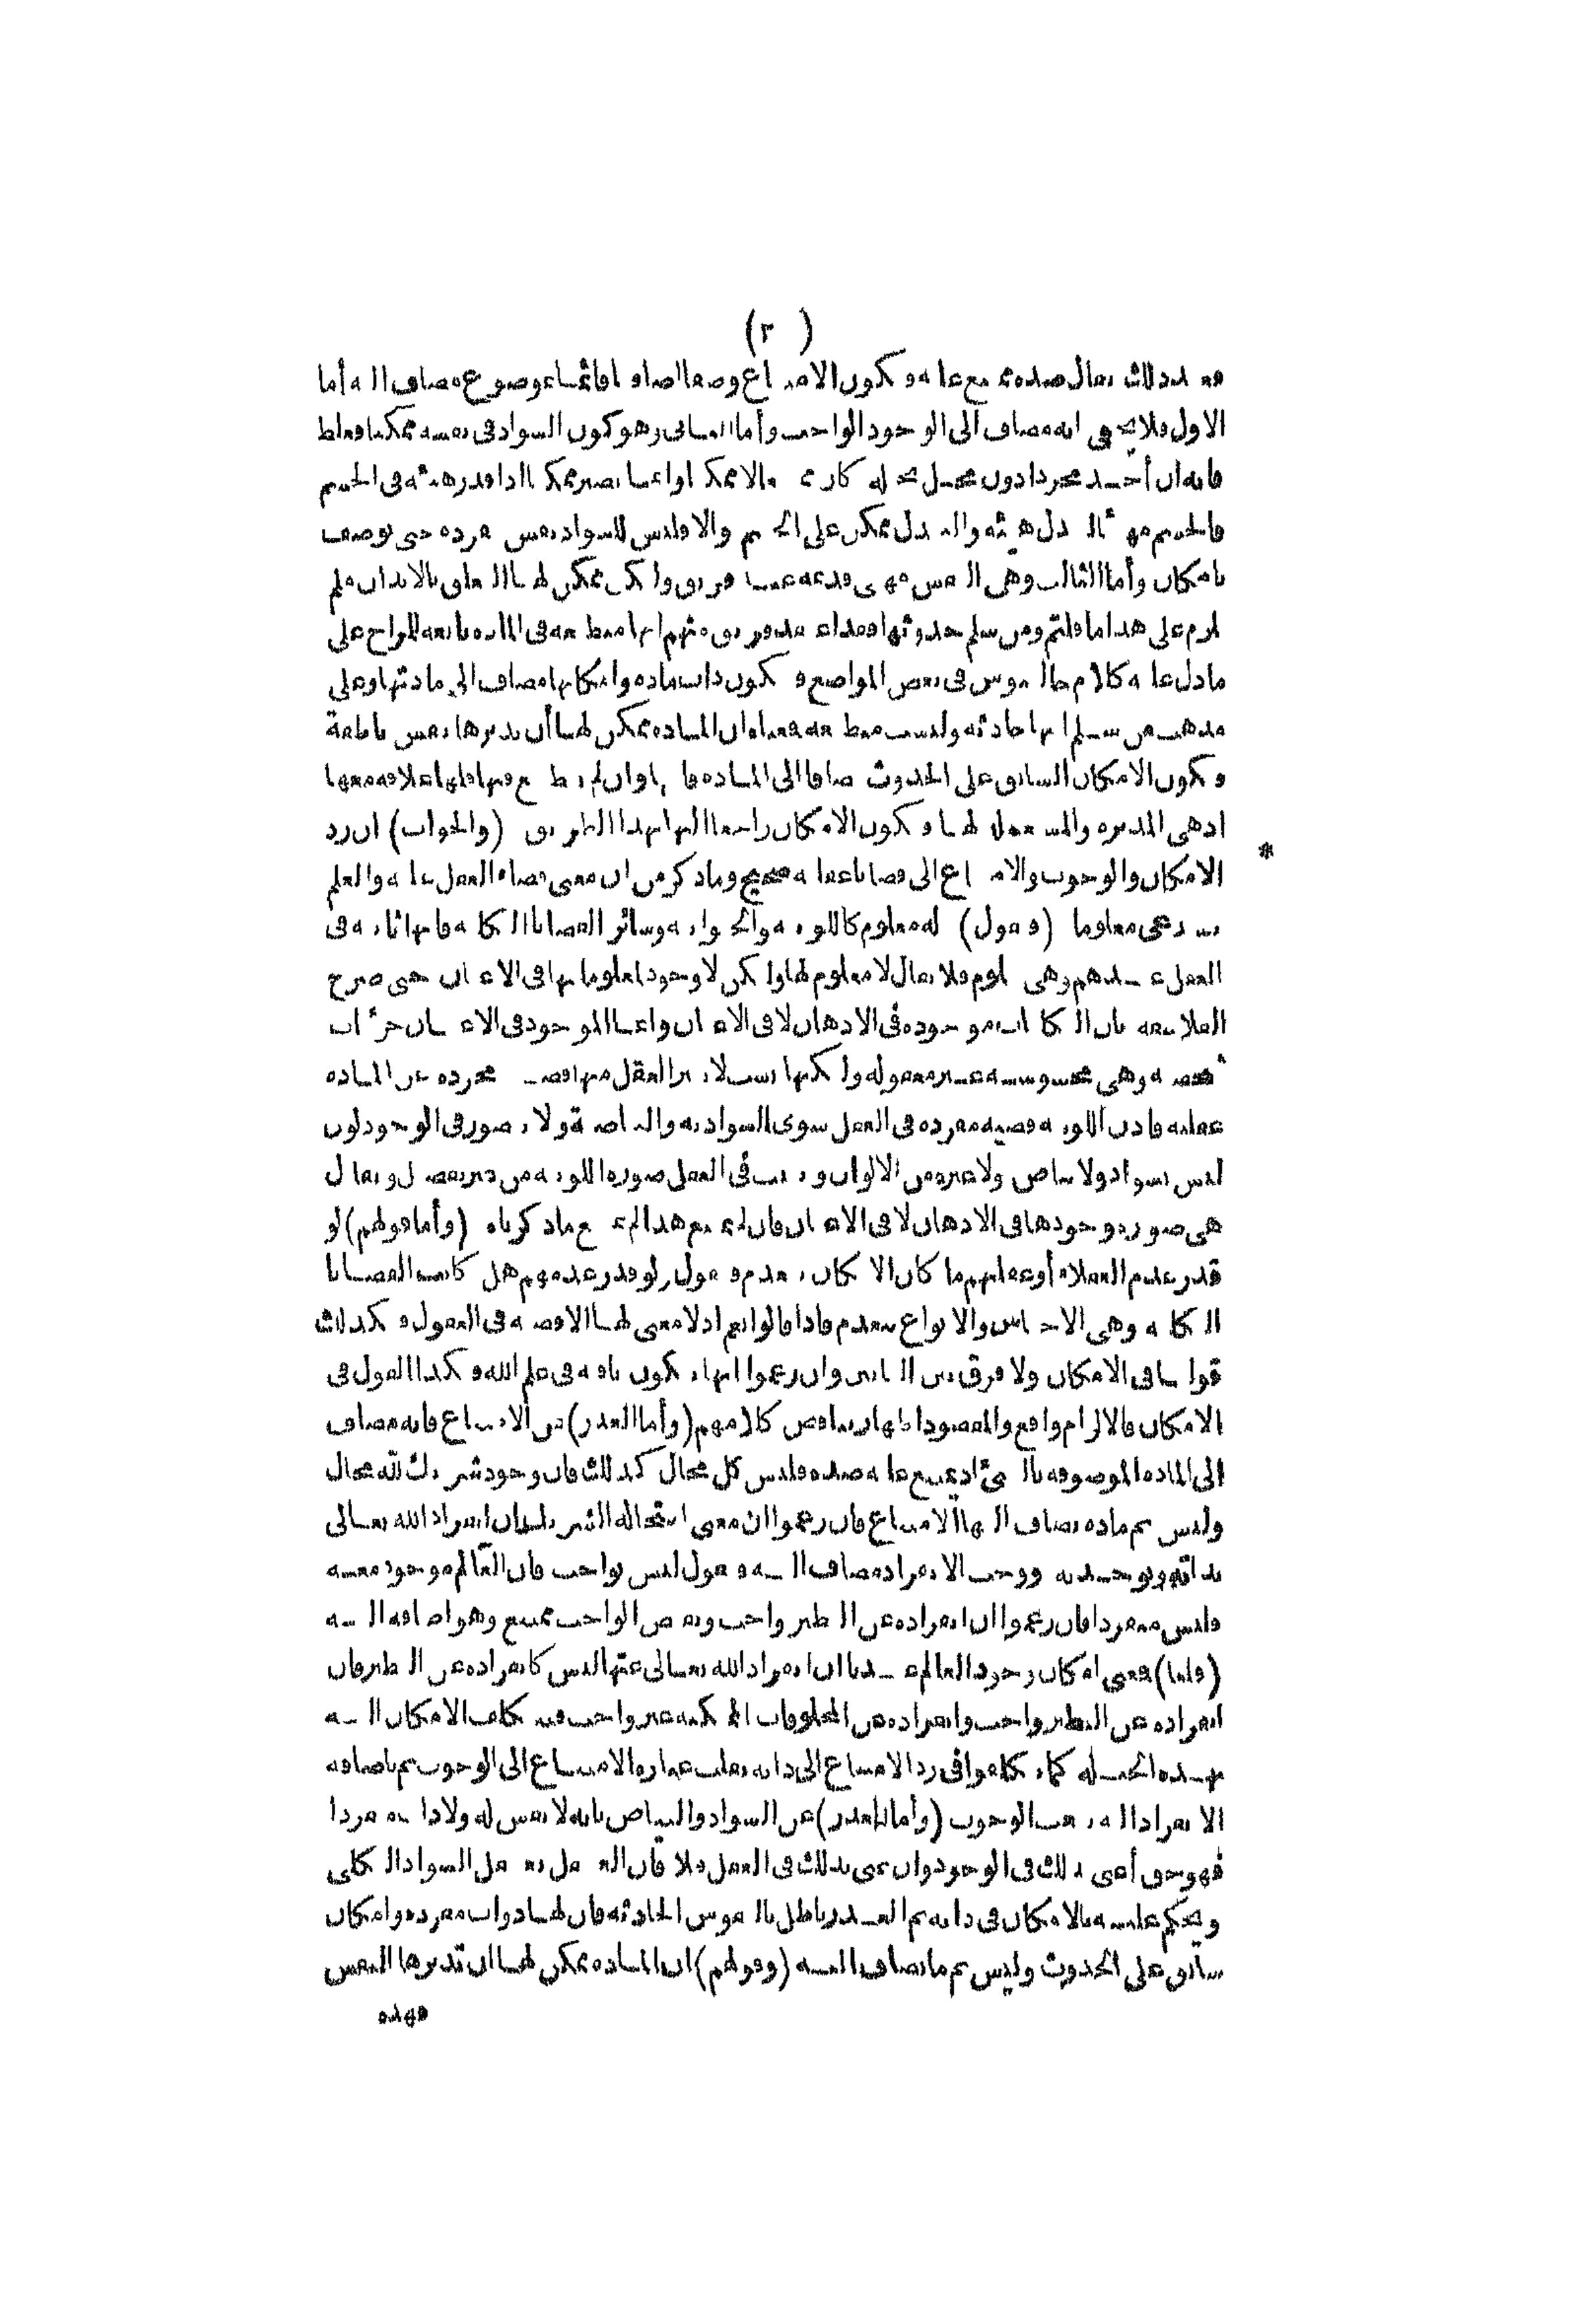 ( ٢ )
فعند ذلك يقال ضده ممتنع عليه فيكون الامتناع وصفا اضافيا قائما بموضوع مضاف اليه أما
الاول فلا يخفى انه مضاف الى الوجود الواجب وأما الثانى وهو كون السواد فى نفسه ممكنا فغلط
فانه ان أخذ مجردا دون محل يحله كان ممتنعا لا ممكنا وانما يصير ممكنا اذا قدر هيئة فى الجسم
فالجسم مهيأ لتبدل هيئة والتبدل ممكن على الجسم والا فليس للسواد نفس مفردة حتى توصف
بامكان وأما الثالث وهى النفس فهى قديمة عند فريق ولكن ممكن لها التعلق بالابدان فلم
يلزم على هذا ما قلتم ومن سلم حدوثها فقد اعتقد فريق منهم انها منطبعة فى المادة تابعة للمزاج على
ما دل عليه كلام جالينوس فى بعض المواضع فتكون ذات مادة وامكانها مضاف الى مادتها وعلى
مذهب من سلم انها حادثة وليست منطبعة فمعناه ان المادة ممكن لها أن يدبرها نفس ناطقة
فيكون الامكان السابق على الحدوث مضافا الى المادة فانها وان لم تنطبع فيها فلها علاقة معها
اذ هى المدبرة والمستعملة لها فيكون الامكان راجعا اليها بهذا الطريق (والجواب) ان رد
الامكان والوجوب والامتناع الى قضايا عقلية صحيح وما ذكر من ان معنى قضاء العقل علمه والعلم
يستدعى معلوما (فنقول) له معلوم كما للونية والحيوانية وسائر القضايا الكلية فانها ثابتة فى
العقل عندهم وهى علوم فلا يقال لا معلوم لها ولكن لا وجود لمعلوماتها فى الاعيان حتى صرح
الفلاسفة بان الكليات موجودة فى الاذهان لا فى الاعيان وانما الموجود فى الاعيان جزئيات
شخصية وهى محسوسة غير معقولة ولكنها سبب لان يثير العقل منها قضية مجردة عن المادة
عقلية فاذن اللونية قضية مفردة فى العقل سوى السوادية والبياضية ولا يتصور فى الوجود لون
ليس بسواد ولا بياض ولا غيره من الالوان ويثبت فى العقل صورة اللونية من غير تفصيل ويقال
هى صورة وجودها فى الاذهان لا فى الاعيان فان لم يمتنع هذا لم يمتنع ما ذكرناه (وأما قولهم) لو
قدر عدم العقلاء أو غفلتهم ما كان الامكان ينعدم فنقول ولو قدر عدمهم هل كانت القضايا
الكلية وهى الاجناس والانواع تنعدم فاذا قالوا نعم اذ لا معنى لها الا قضية فى العقول فكذلك
قولنا فى الامكان ولا فرق بين البابين وان زعموا انها تكون باقية فى علم الله فكذا القول فى
الامكان فالالزام واقع والمقصود اظهار تناقض كلامهم (وأما العذر) عن الامتناع فانه مضاف
الى المادة الموصوفة بالشئ اذ يمتنع عليه ضده فليس كل محال كذلك فان وجود شريك لله محال
وليس ثم مادة يضاف اليها الامتناع فان زعموا ان معنى استحالة الشريك ان انفراد الله تعالى
بذاته وتوحده ووجب الانفراد مضاف اليه فنقول ليس بواجب فان العالم موجود معه
فليس منفردا فان زعموا ان انفراده عن النظير واجب ونقيض الواجب ممتنع وهو اضافة اليه
(قلنا) فمعنى امكان وجود العالم عندنا ان انفراد الله تعالى عنها ليس كانفراده عن النظير فان
انفراده عن النظير واجب وانفراده عن المخلوقات الممكنة غير واجب فيتكلف الامكان اليه
بهذه الحيلة كما تكلفوا فى رد الامتناع الى ذاته بقلب عبارة الامتناع الى الوجوب ثم باضافة
الانفراد اليه بنعت الوجوب (وأما العذر) عن السواد والبياض بانه لا نفس له ولا ذات مفردا
فهو حق أعنى بذلك فى الوجود وان عنى بذلك فى العقل فلا فان العقل يعقل السواد الكلى
ويحكم عليه بالامكان فى ذاته ثم العذر باطل بالنفوس الحادثة فان لها ذوات مفردة وامكان
سابق على الحدوث وليس ثم ما يضاف اليه (وقولهم) ان المادة ممكن لها ان تدبرها النفس
فهذه
*